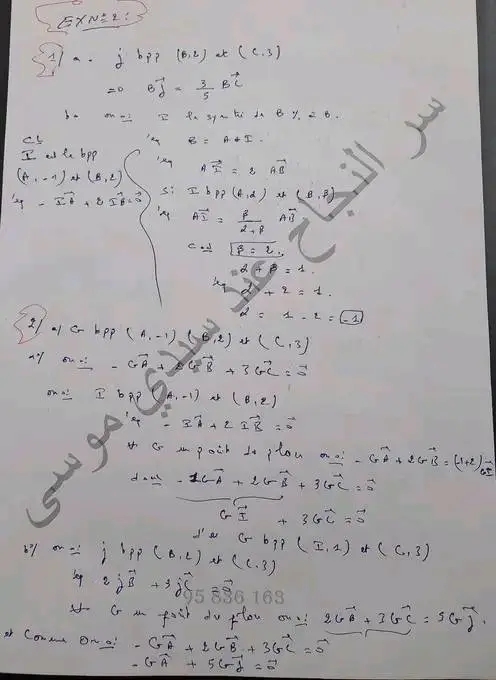 EXN°2:
1) a - j bpp (B,2) et (C,3)
=> Bj = 3/5 BC
b - on a: I le symétri de A % à B.
'eq B = A * I.
'eq AI = 2 AB
Si I bpp (A,α) et (B,β)
'eq AI = β/(α+β) AB
c.a.d β = 2.
α + β = 1.
'eq α + 2 = 1.
α = 1 - 2 = -1
C/
I est le bpp
(A,-1) et (B,2)
'eq - IA + 2IB = 0
2) a/ G bpp (A,-1) (B,2) et (C,3)
a% on a: - GA + 2GB + 3GC = 0
on a: I bpp (A,-1) et (B,2)
'eq - IA + 2IB = 0
et G un point du plan on a: - GA + 2GB = (-1+2) GI
donc - GA + 2GB + 3GC = 0
GI + 3GC = 0
d'où G bpp (I,1) et (C,3)
b% on a: j bpp (B,2) et (C,3)
'eq 2jB + 3jC = 0
et G un point du plan on a: 2GB + 3GC = 5Gj.
et Comme on a: - GA + 2GB + 3GC = 0
- GA + 5Gj = 0
سر النجاح عند سيدي موسى
95 836 163